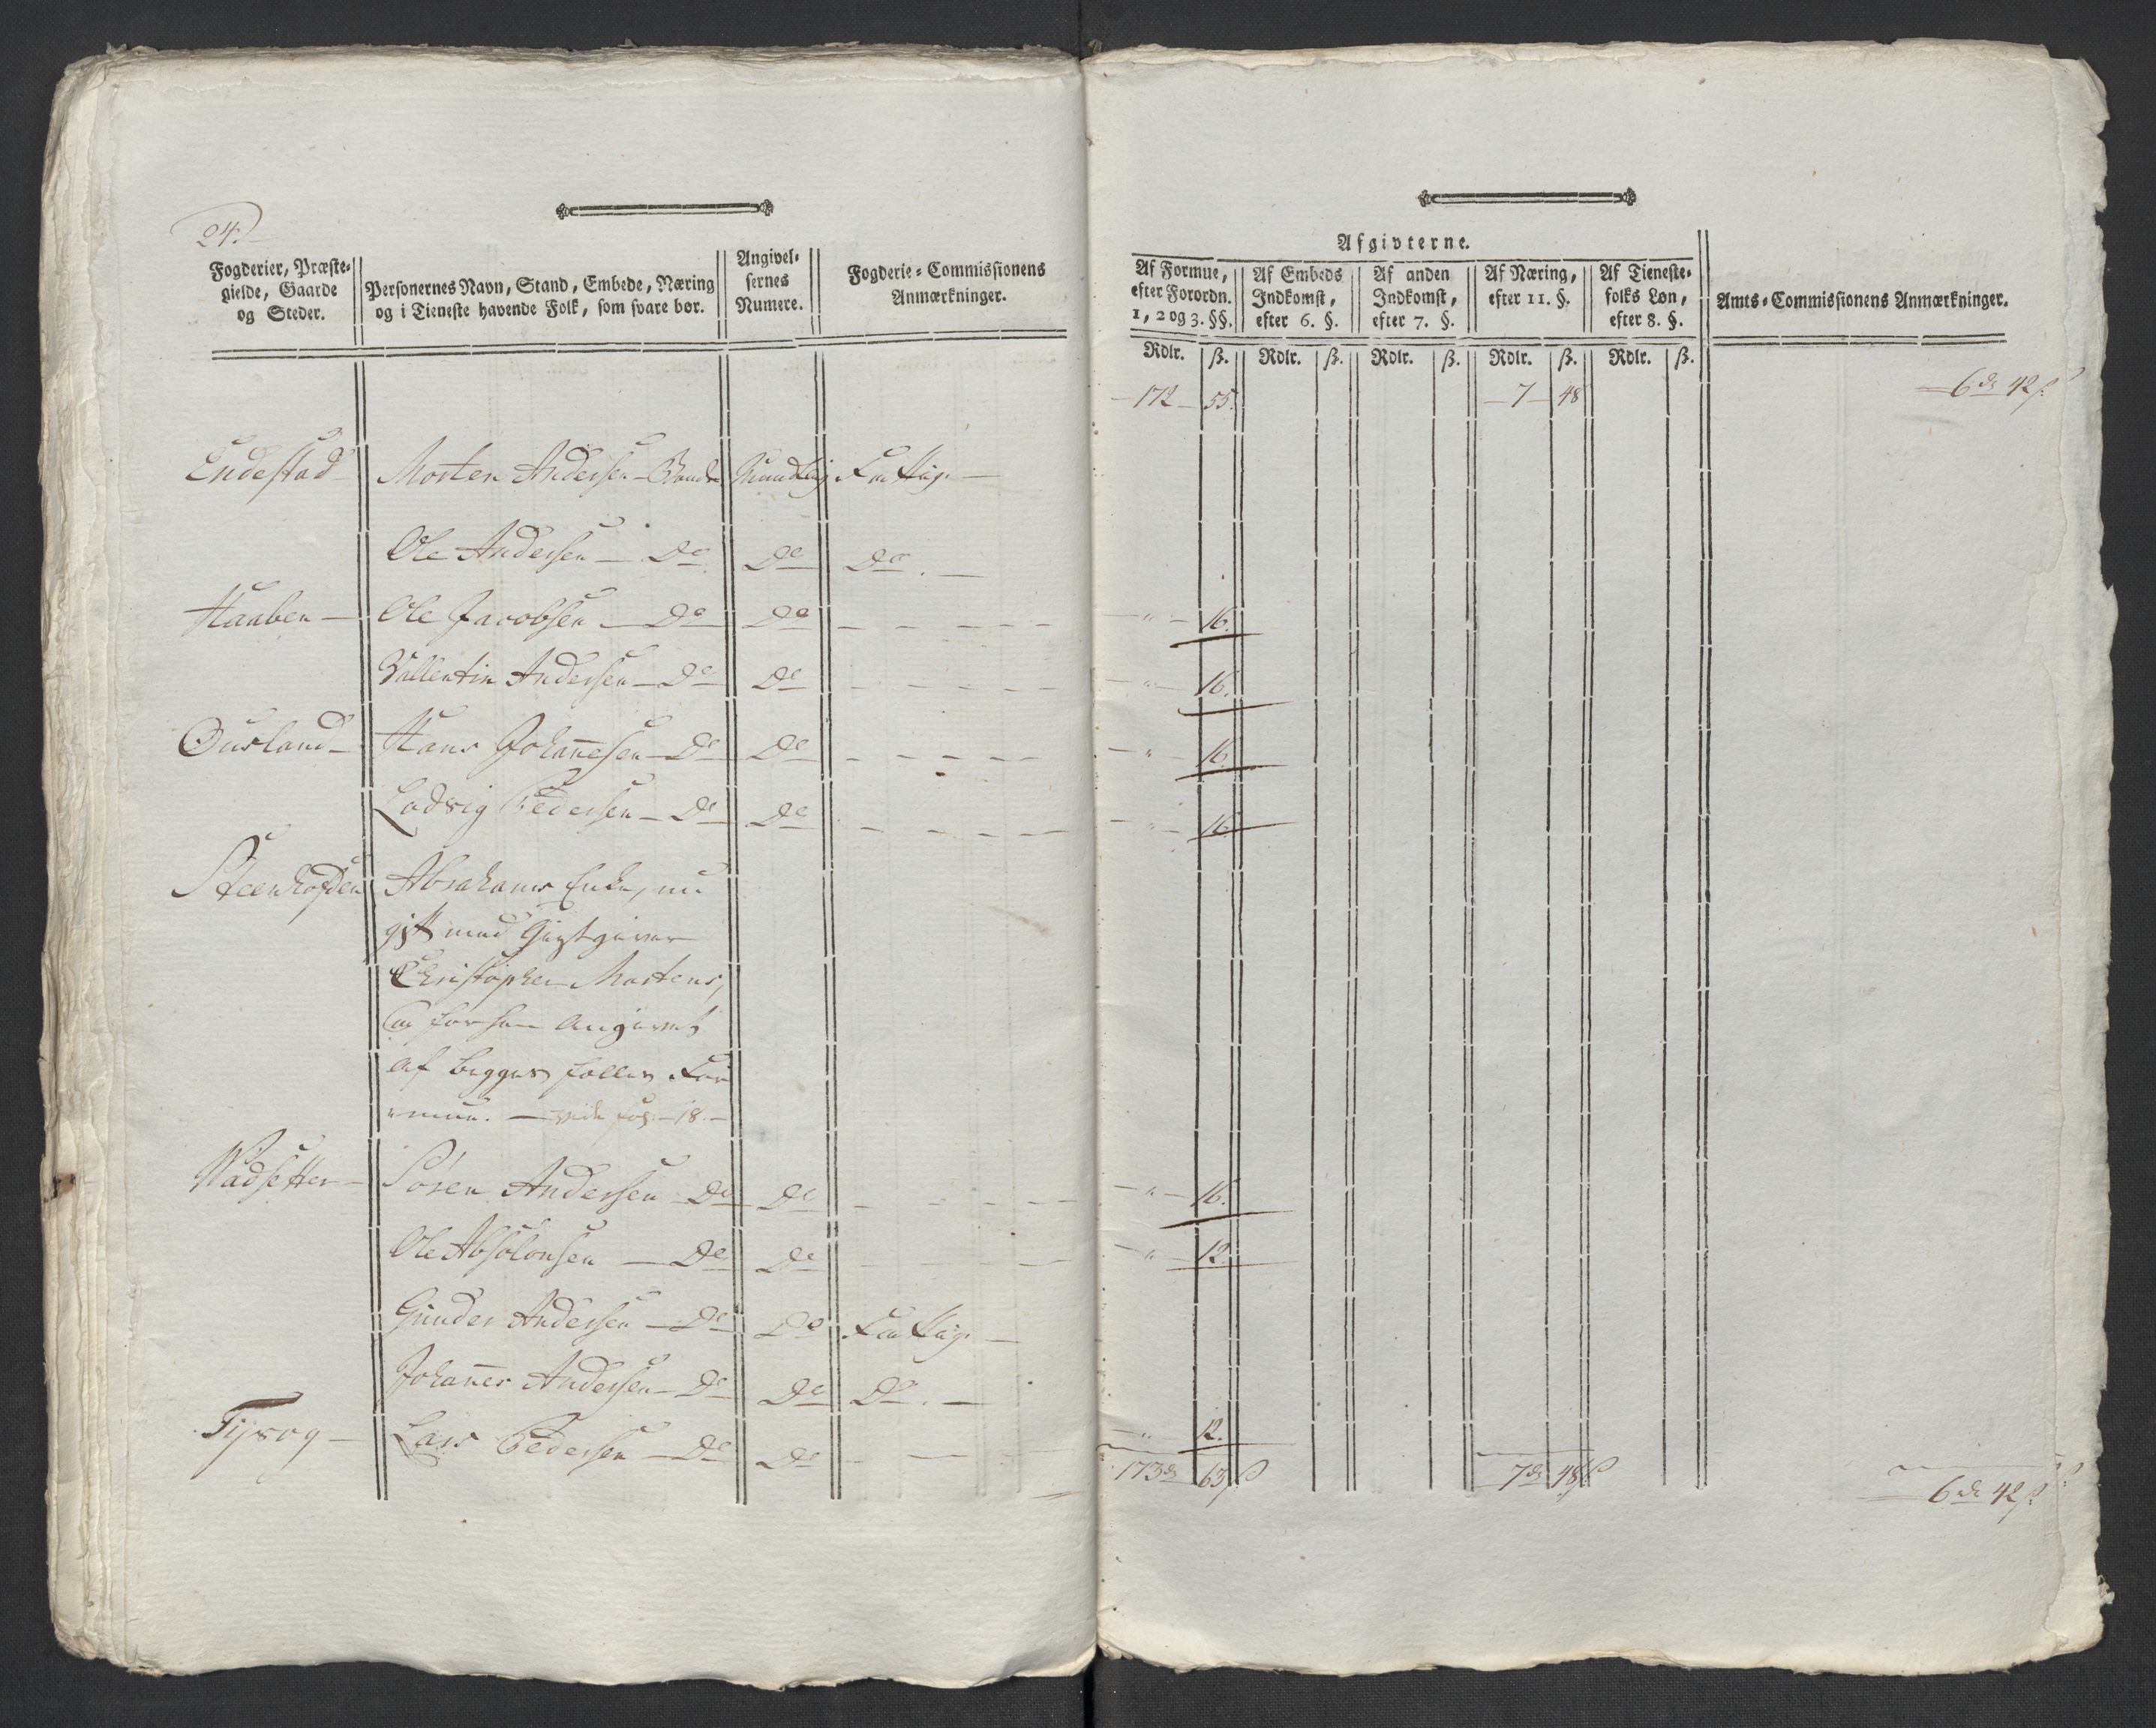 24.
Fogderier, Præste-
gielde, Gaarde
og Steder.
Personernes Navn, Stand, Embede, Næring
og i Tieneste havende Folk, som svare bør.
Angivel-
sernes
Numere.
Fogderie-Commissionens
Anmærkninger.
Afgivterne.
Af Formue,
efter Forordn.
1, 2 og 3. §§.
Af Embeds
Indkomst,
efter 6. §.
Af anden
Indkomst,
efter 7. §.
Af Næring,
efter 11. §.
Af Tieneste-
folks Løn,
efter 8. §.
Amts-Commissionens Anmærkninger.
Rdlr. ß. Rdlr. ß. Rdlr. ß. Rdlr. ß. Rdlr. ß.
172 55. 7 48 6 rd 42 ß.
Endestad Morten Andersen Bonde Mundtlig Fattig.
Ole Andersen Do Do Do.
Haaben Ole Jacobsen Do Do " 16.
Vallentin Andersen Do Do " 16.
Ousland Hans Johanesen Do Do " 16
Lodvig Pedersen Do Do " 16
Steenhofden Abrahams Enke, nu
gift med Giestgiver
Christopher Mortens,
er for ham angivet
af begges fælles For
mue. vide fol. 18.
Wadsetter Søren Andersen Do Do " 16.
Ole Absolonsen Do Do " 12.
Gunder Andersen Do Do Fattig.
Johanes Andersen Do Do Do.
Tysog Lars Pedersen Do Do " 12.
173 rd 63 ß 7 rd 48 ß 6 rd 42 ß.